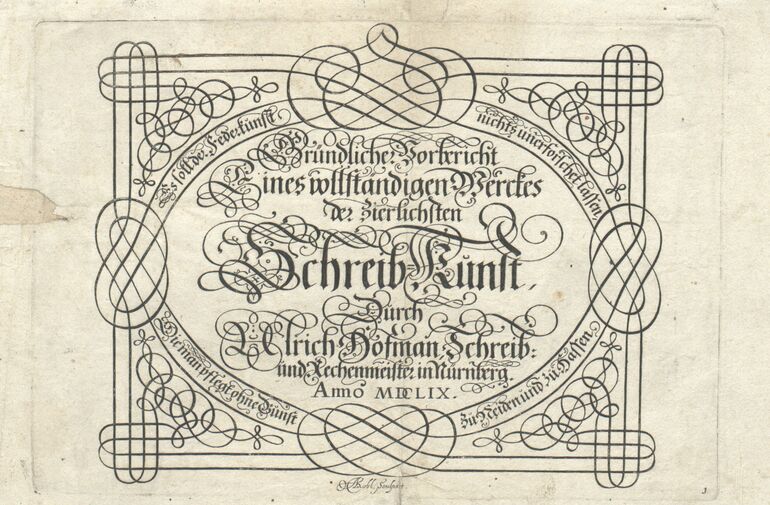 Es soll der Feder kunst
nichts unerforschet lassen,
Gründlicher Vorbericht
Eines vollständigen Werckes
der zierlichsten
Schreib-Kunst,
Durch
Ulrich Hofman, Schreib-
und Rechenmeister in Nürnberg.
Anno MDCLIX.
Die man pflegt ohne Gunst
zu Neiden und zu Hassen.
Sculpsit.